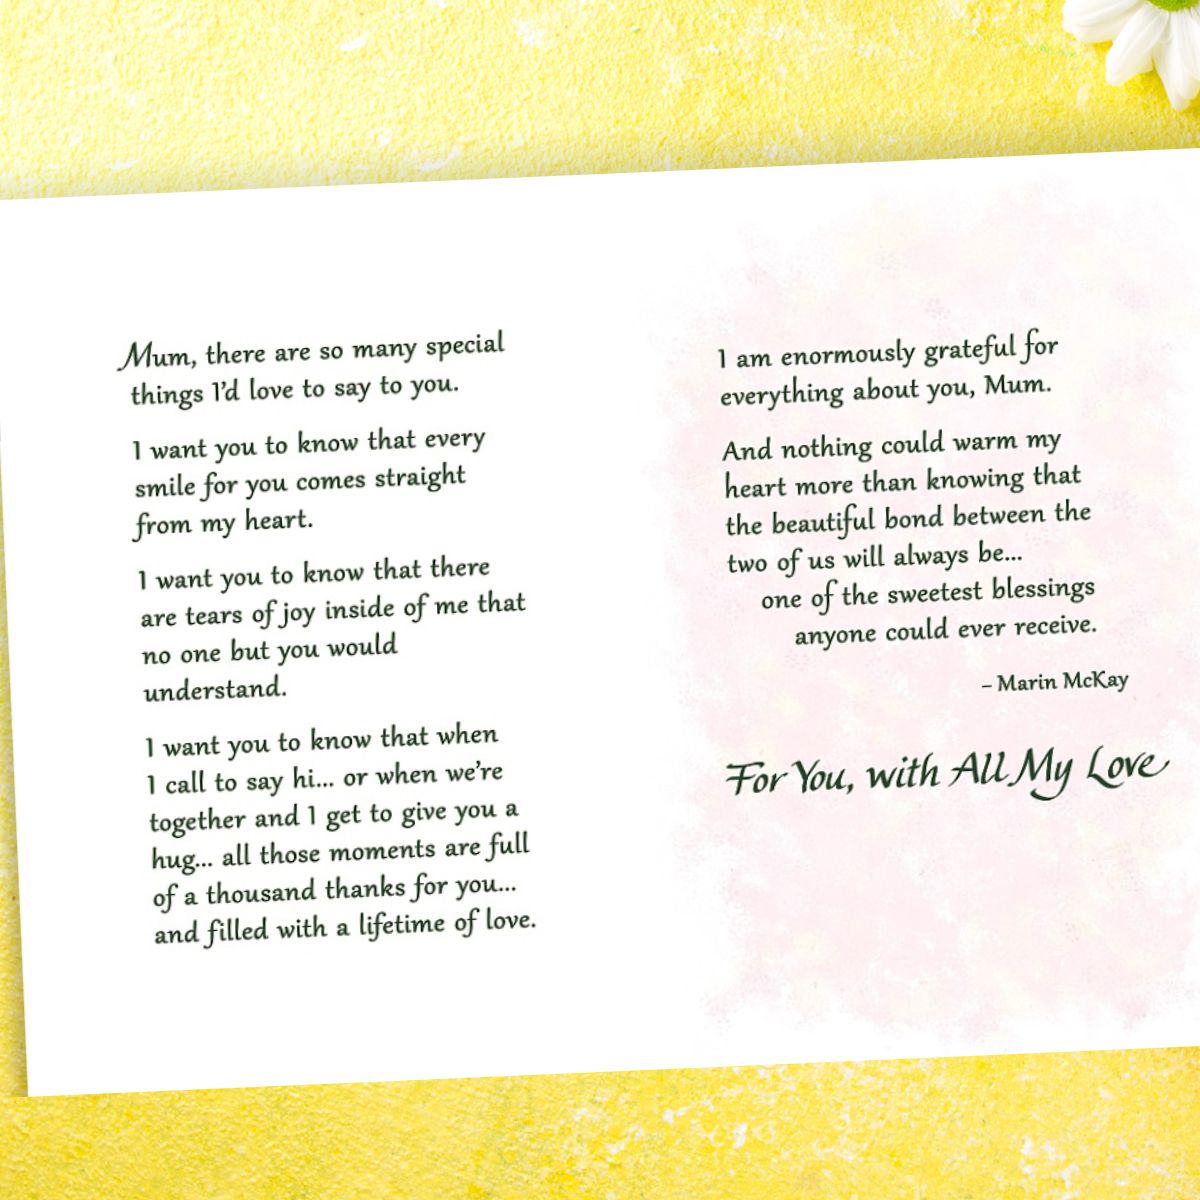 Mum, there are so many special
things I'd love to say to you.
I want you to know that every
smile for you comes straight
from my heart.
I want you to know that there
are tears of joy inside of me that
no one but you would
understand.
I want you to know that when
I call to say hi... or when we're
together and I get to give you a
hug... all those moments are full
of a thousand thanks for you...
and filled with a lifetime of love.
I am enormously grateful for
everything about you, Mum.
And nothing could warm my
heart more than knowing that
the beautiful bond between the
two of us will always be...
one of the sweetest blessings
anyone could ever receive.
– Marin McKay
For You, with All My Love